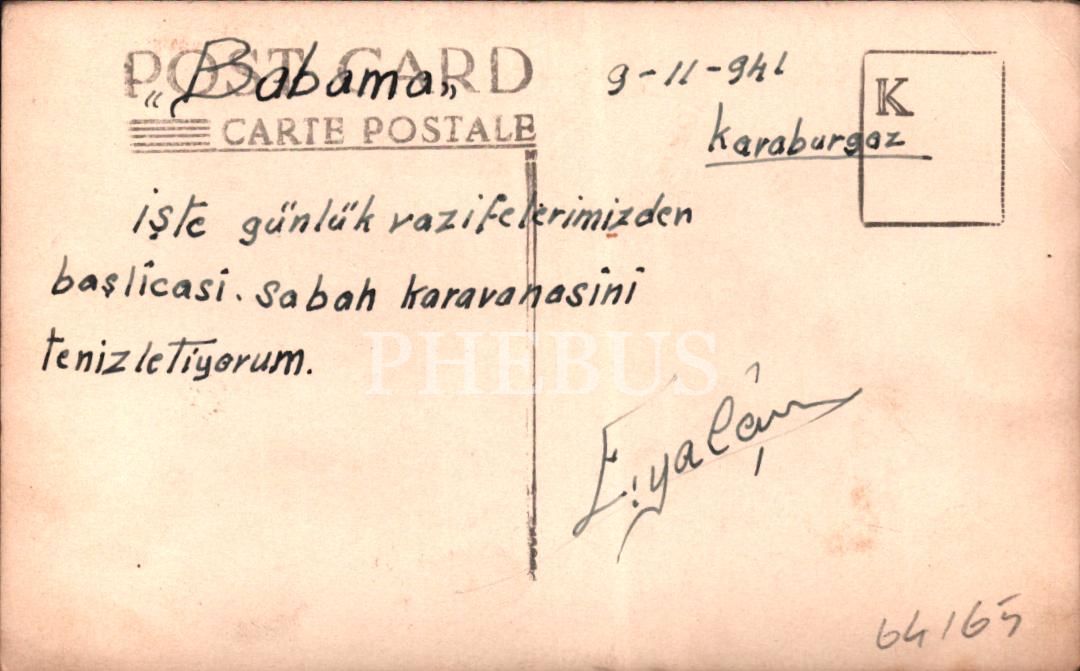 POST CARD
"Babama"
CARTE POSTALE
9-11-941
K
Karaburgaz
işte günlük vazifelerimizden
başlîcasî. sabah karavanasînî
tenizletiyorum.
PHEBUS
64165